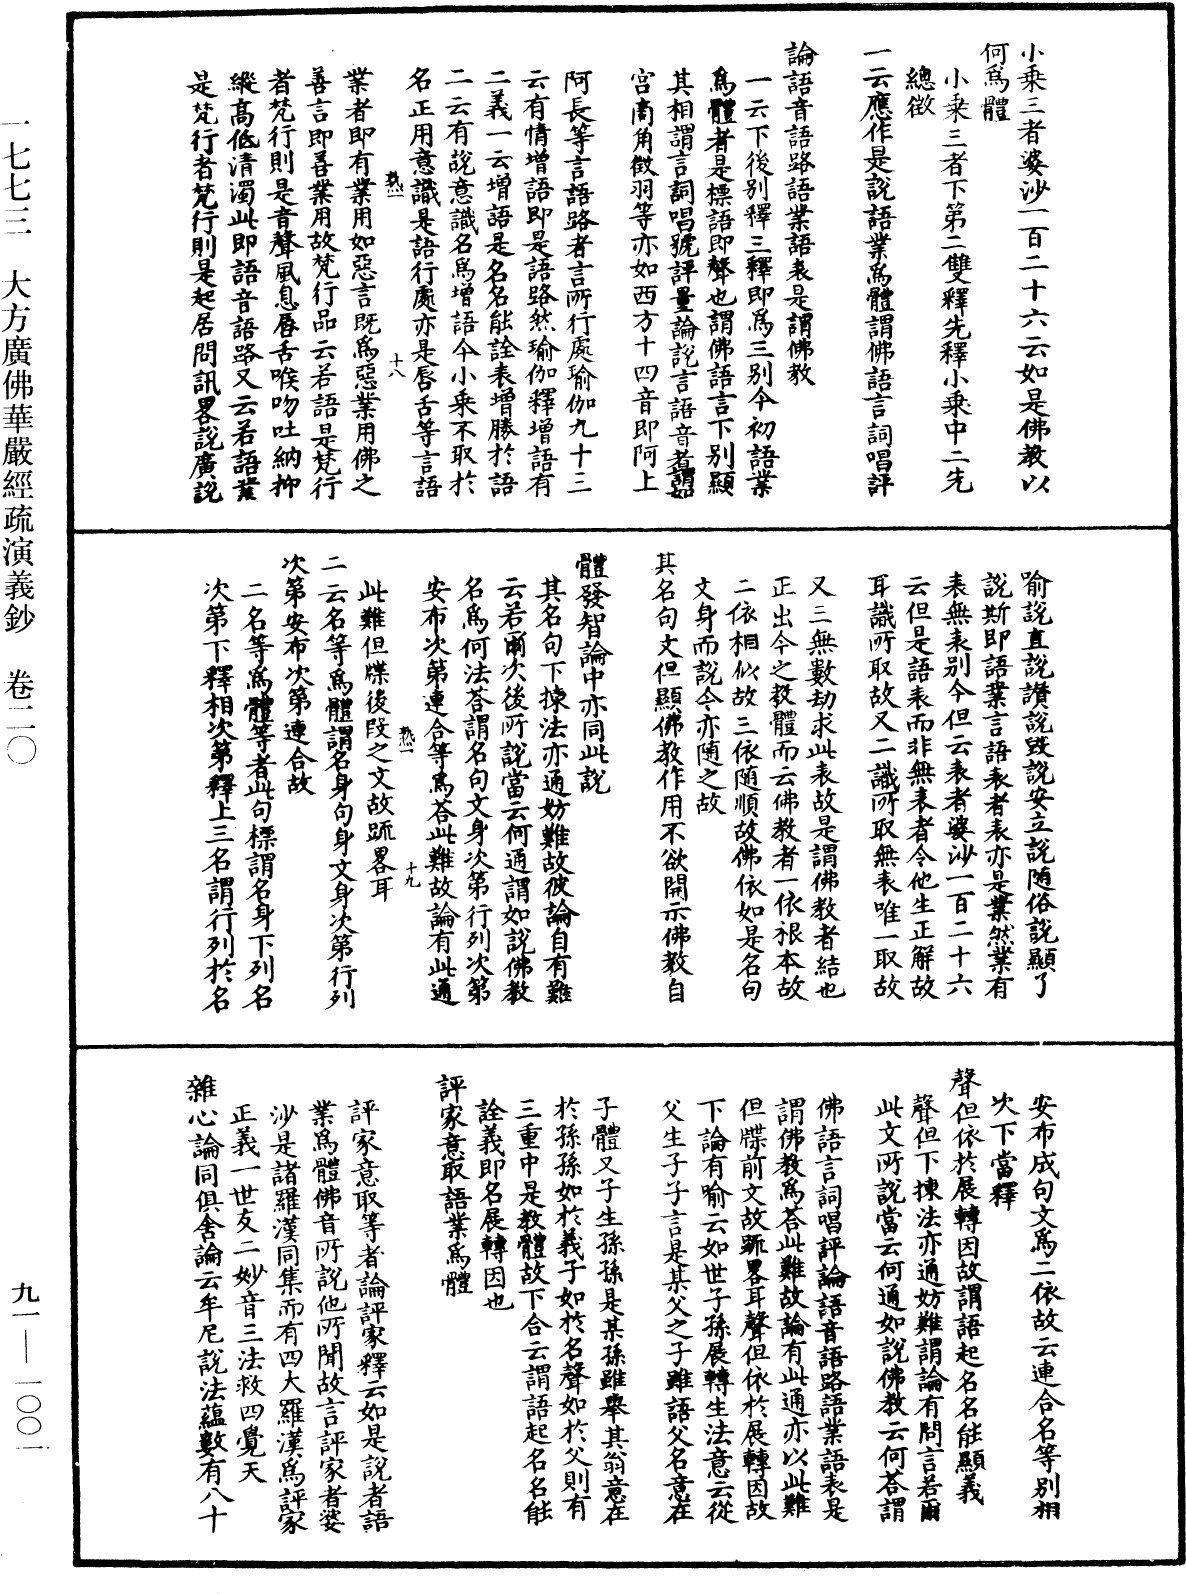 小乘三者婆沙一百二十六云如是佛教以
何爲體
小乘三者下第二雙釋先釋小乘中二先
總徵
一云應作是說語業爲體謂佛語言詞唱評
論語音語路語業語表是謂佛教
一云下後別釋三釋即爲三別今初語業
爲體者是標語即聲也謂佛語言下別顯
其相謂言詞唱號評量論說言語音者謂如
宮商角徵羽等亦如西方十四音即阿上
阿長等言語路者言所行處瑜伽九十三
云有情增語即是語路然瑜伽釋增語有
二義一云增語是名名能詮表增勝於語
二云有說意識名爲增語今小乘不取於
名正用意識是語行處亦是唇舌等言語
業者即有業用如惡言既爲惡業用佛之
善言即善業用故梵行品云若語是梵行
者梵行則是音聲風息唇舌喉吻吐納抑
縱高低清濁此即語音語路又云若語業
是梵行者梵行則是起居問訊畧說廣說
熱一
十八
喻說直說讚說毀說安立說随俗說顯了
說斯即語業言語表者表亦是業然業有
表無表別今但云表者婆沙一百二十六
云但是語表而非無表者令他生正解故
耳識所取故又二識所取無表唯一取故
又三無數劫求此表故是謂佛教者結也
正出今之教體而云佛教者一依根本故
二依相似故三依随順故佛依如是名句
文身而說今亦随之故
其名句文但顯佛教作用不欲開示佛教自
體發智論中亦同此說
其名句下揀法亦通妨難故彼論自有難
云若爾次後所說當云何通謂如說佛教
名爲何法荅謂名句文身次第行列次第
安布次第連合等爲荅此難故論有此通
此難但牒後段之文故䟽畧耳
二云名等爲體謂名身句身文身次第行列
次第安布次第連合故
二名等爲體等者此句標謂名身下列名
次第下釋相次第釋上三名謂行列於名
熱一
十九
安布成句文爲二依故云連合名等別相
次下當釋
聲但依於展轉因故謂語起名名能顯義
聲但下揀法亦通妨難謂論有問言若爾
此文所說當云何通如說佛教云何荅謂
佛語言詞唱評論語音語路語業語表是
謂佛教爲荅此難故論有此通亦以此難
但牒前文故䟽畧耳聲但依於展轉因故
下論有喻云如世子孫展轉生法意云從
父生子子言是某父之子雖語父名意在
子體又子生孫孫是某孫雖舉其翁意在
於孫孫如於義子如於名聲如於父則有
三重中是教體故下合云謂語起名名能
詮義即名展轉因也
評家意取語業爲體
評家意取等者論評家釋云如是說者語
業爲體佛音所說他所聞故言評家者婆
沙是諸羅漢同集而有四大羅漢爲評家
正義一世友二妙音三法救四覺天
雜心論同俱舍論云牟尼說法蘊數有八十
一七七三　大方廣佛華嚴經疏演義鈔　卷二〇
九一—一〇〇一